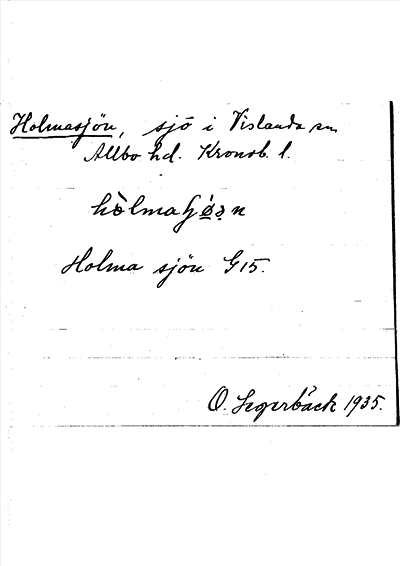 Holmasjön, sjö i Vislanda sn
Allbo hd. Kronob. l.
Holma sjön G15.
O. Segerbäck 1935.